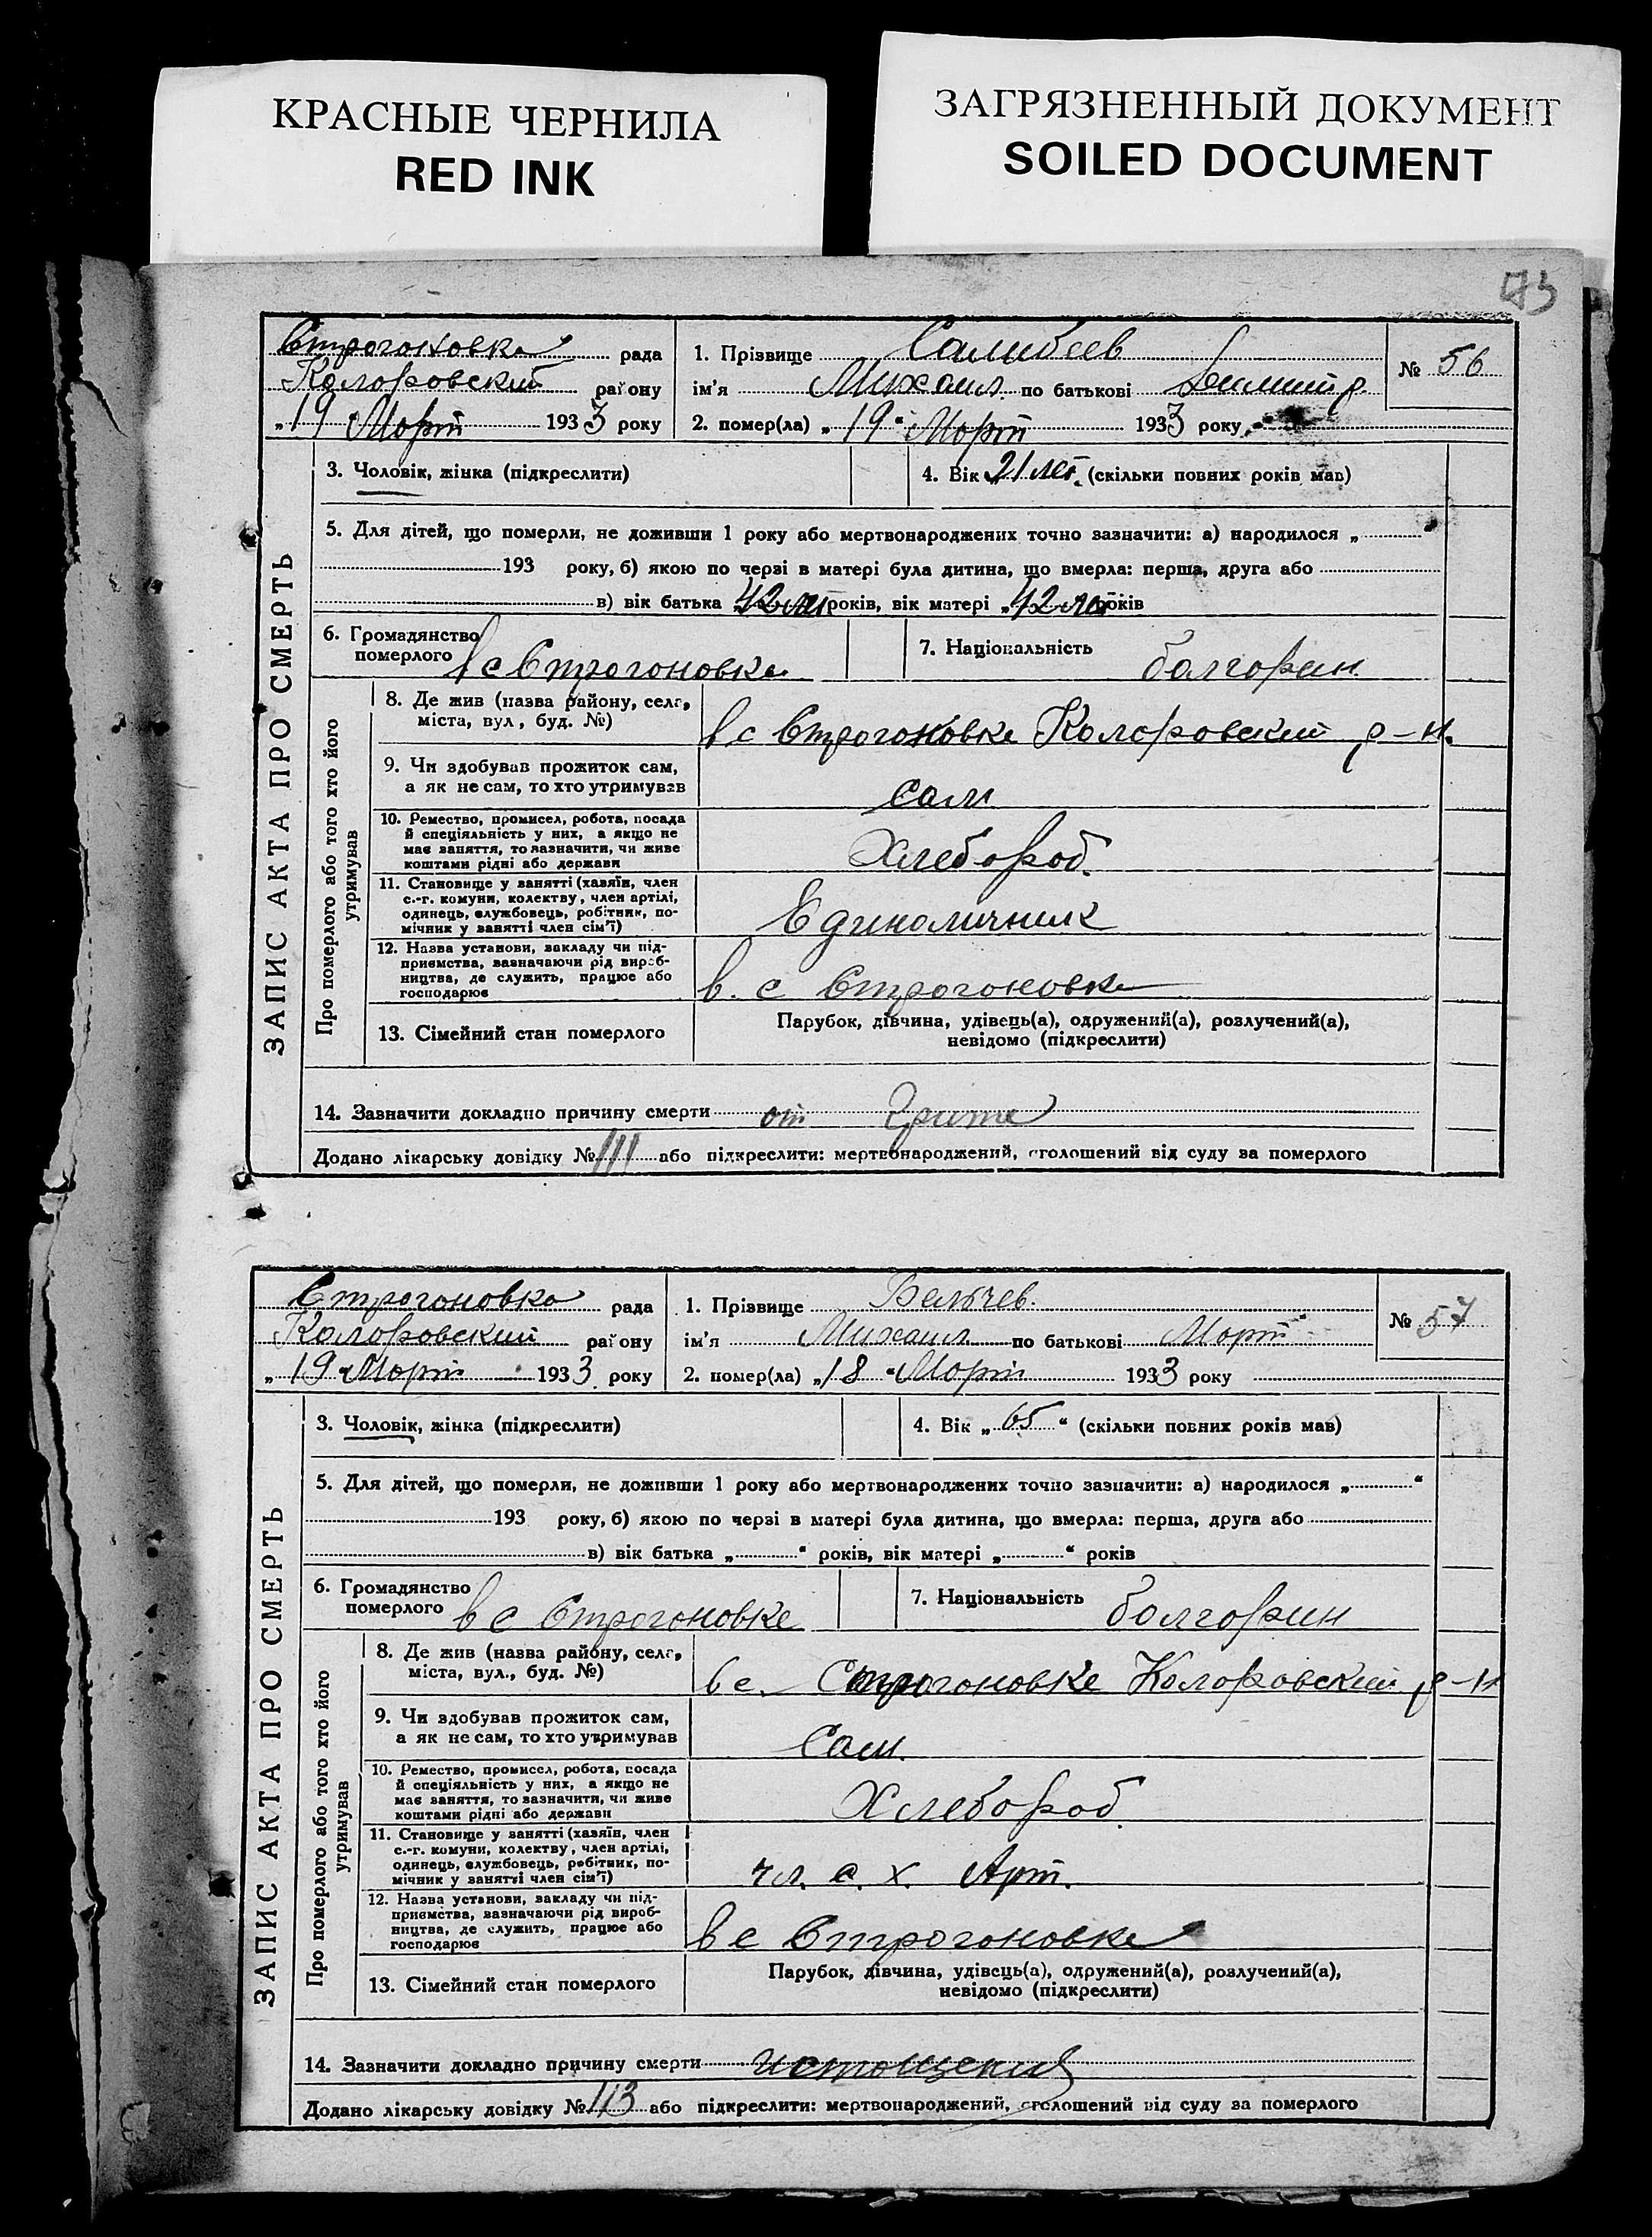 КРАСНЫЕ ЧЕРНИЛА
RED INK
ЗАГРЯЗНЕННЫЙ ДОКУМЕНТ
SOILED DOCUMENT
Строгоновка рада
Коларовский району
„19 Март 1933 року
1. Прізвище Салибеев
ім'я Михаил по батькові
2. помер(ла) „19“ Март 1933 року
№ 56
ЗАПИС АКТА ПРО СМЕРТЬ
3. Чоловік, жінка (підкреслити)
4. Вік „21 лет (скільки повних років мав)
5. Для дітей, що померли, не доживши 1 року або мертвонароджених точно зазначити: а) народилося „ “
193 року, б) якою по черзі в матері була дитина, що вмерла: перша, друга або
в) вік батька „42 лет років, вік матері „42 лет років
6. Громадянство
померлого в с Строгоновке
7. Національність болгарин
Про померлого або того хто його
утримував
8. Де жив (назва району, село,
міста, вул., буд. №)
в с Строгоновке Коларовский р-н.
9. Чи здобував прожиток сам,
а як не сам, то хто утримував
сам
10. Ремество, промисел, робота, посада
й спеціяльність у них, а якщо не
має заняття, то зазначити, чи живе
коштами рідні або держави
Хлебороб.
11. Становище у занятті (хазяїн, член
с.-г. комуни, колектву, член артілі,
одинець, службовець, робітник, по-
мічник у занятті член сім'ї)
Единоличник
12. Назва установи, закладу чи під-
приємства, зазначаючи рід вироб-
ництва, де служить, працює або
господарює
в. с Строгоновке
13. Сімейний стан померлого
Парубок, дівчина, удівець(а), одружений(а), розлучений(а),
невідомо (підкреслити)
14. Зазначити докладно причину смерти от
Додано лікарську довідку № 111 або підкреслити: мертвонароджений, оголошений від суду за померлого
Строгоновка рада
Коларовский району
„19“ Март 1933 року
1. Прізвище Вельчев.
ім'я Михаил по батькові Март
2. помер(ла) „18“ Март 1933 року
№ 57
ЗАПИС АКТА ПРО СМЕРТЬ
3. Чоловік, жінка (підкреслити)
4. Вік „65“ (скільки повних років мав)
5. Для дітей, що померли, не доживши 1 року або мертвонароджених точно зазначити: а) народилося „ “
193 року, б) якою по черзі в матері була дитина, що вмерла: перша, друга або
в) вік батька „ “ років, вік матері „ “ років
6. Громадянство
померлого в с Строгоновке
7. Національність болгарин
Про померлого або того хто його
утримував
8. Де жив (назва району, село,
міста, вул., буд. №)
в с. Строгоновке Коларовский р-н
9. Чи здобував прожиток сам,
а як не сам, то хто утримував
Сам.
10. Ремество, промисел, робота, посада
й спеціяльність у них, а якщо не
має заняття, то зазначити, чи живе
коштами рідні або держави
Хлебороб
11. Становище у занятті (хазяїн, член
с.-г. комуни, колектву, член артілі,
одинець, службовець, робітник, по-
мічник у занятті член сім'ї)
чл. с. х. Арт.
12. Назва установи, закладу чи під-
приємства, зазначаючи рід вироб-
ництва, де служить, працює або
господарює
в с Строгоновке
13. Сімейний стан померлого
Парубок, дівчина, удівець(а), одружений(а), розлучений(а),
невідомо (підкреслити)
14. Зазначити докладно причину смерти истощения
Додано лікарську довідку № 113 або підкреслити: мертвонароджений, оголошений від суду за померлого